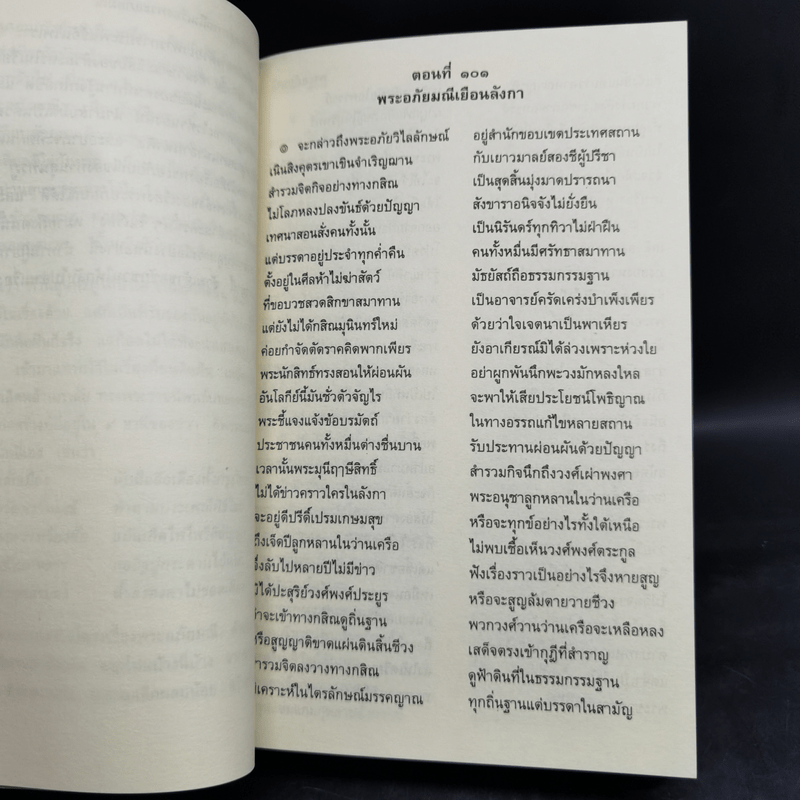 ตอนที่ ๑๐๑
พระอภัยมณีเยือนลังกา
๏ จะกล่าวถึงพระอภัยวิไลลักษณ์ อยู่สำนักขอบเขตประเทศสถาน
เนินสิงคุตรเขาเขินจำเริญฌาน กับเยาวมาลย์สองชีผู้ปรีชา
สำรวมจิตกิจอย่างทางกสิณ เป็นสุดสิ้นมุ่งมาดปรารถนา
ไม่โลภหลงปลงขันธ์ด้วยปัญญา สังขาราอนิจจังไม่ยั่งยืน
เทศนาสอนสั่งคนทั้งนั้น เป็นนิรันดร์ทุกทิวาไม่ฝ่าฝืน
แต่บรรดาอยู่ประจำทุกค่ำคืน คนทั้งหมื่นมีศรัทธาสมาทาน
ตั้งอยู่ในศีลห้าไม่ฆ่าสัตว์ มัธยัสถ์ถือธรรมกรรมฐาน
ที่ขอบวชสวดสิกขาสมาทาน เป็นอาจารย์ครัดเคร่งบำเพ็งเพียร
แต่ยังไม่ได้กสิณมุนินทร์ใหม่ ด้วยว่าใจเจตนาเป็นพาเหียร
ค่อยกำจัดตัดราคคิดพากเพียร ยังอาเกียรณ์มิได้ล่วงเพราะห่วงใย
พระนักสิทธ์ทรงสอนให้ผ่อนผัน อย่าผูกพันนึกพะวงมักหลงใหล
อันโลกีย์นี้มันชั่วตัวจัญไร จะพาให้เสียประโยชน์โพธิญาณ
พระชี้แจงแจ้งข้อบรมัตถ์ ในทางอรรถแก้ไขหลายสถาน
ประชาชนคนทั้งหมื่นต่างชื่นบาน รับประทานผ่อนผันด้วยปัญญา
เวลานั้นพระมุนีฤๅษีสิทธิ์ สำรวมกิจนึกถึงวงศ์เผ่าพงศา
ไม่ได้ข่าวคราวใครในลังกา พระอนุชาลูกหลานในว่านเครือ
จะอยู่ดีปรีดิ์เปรมเกษมสุข หรือจะทุกข์อย่างไรทั้งใต้เหนือ
ถึงเจ็ดปีลูกหลานในว่านเครือ ไม่พบเชื้อเห็นวงศ์พงศ์ตระกูล
จึ่งลับไปหลายปีไม่มีข่าว ฟังเรื่องราวเป็นอย่างไรจึงหายสูญ
มิได้ปะสุริย์วงศ์พงศ์ประยูร หรือจะสูญล้มตายวายชีวง
ว่าจะเข้าทางกสิณดูถิ่นฐาน พวกวงศ์วานว่านเครือจะเหลือหลง
หรือสูญญาติขาดแผ่นดินสิ้นชีวง เสด็จตรงเข้ากุฎีที่สำราญ
สำรวมจิตลงวางทางกสิณ ดูฟ้าดินที่ในธรรมกรรมฐาน
วิเคราะห์ในไตรลักษณ์มรรคญาณ ทุกถิ่นฐานแต่บรรดาในสามัญ